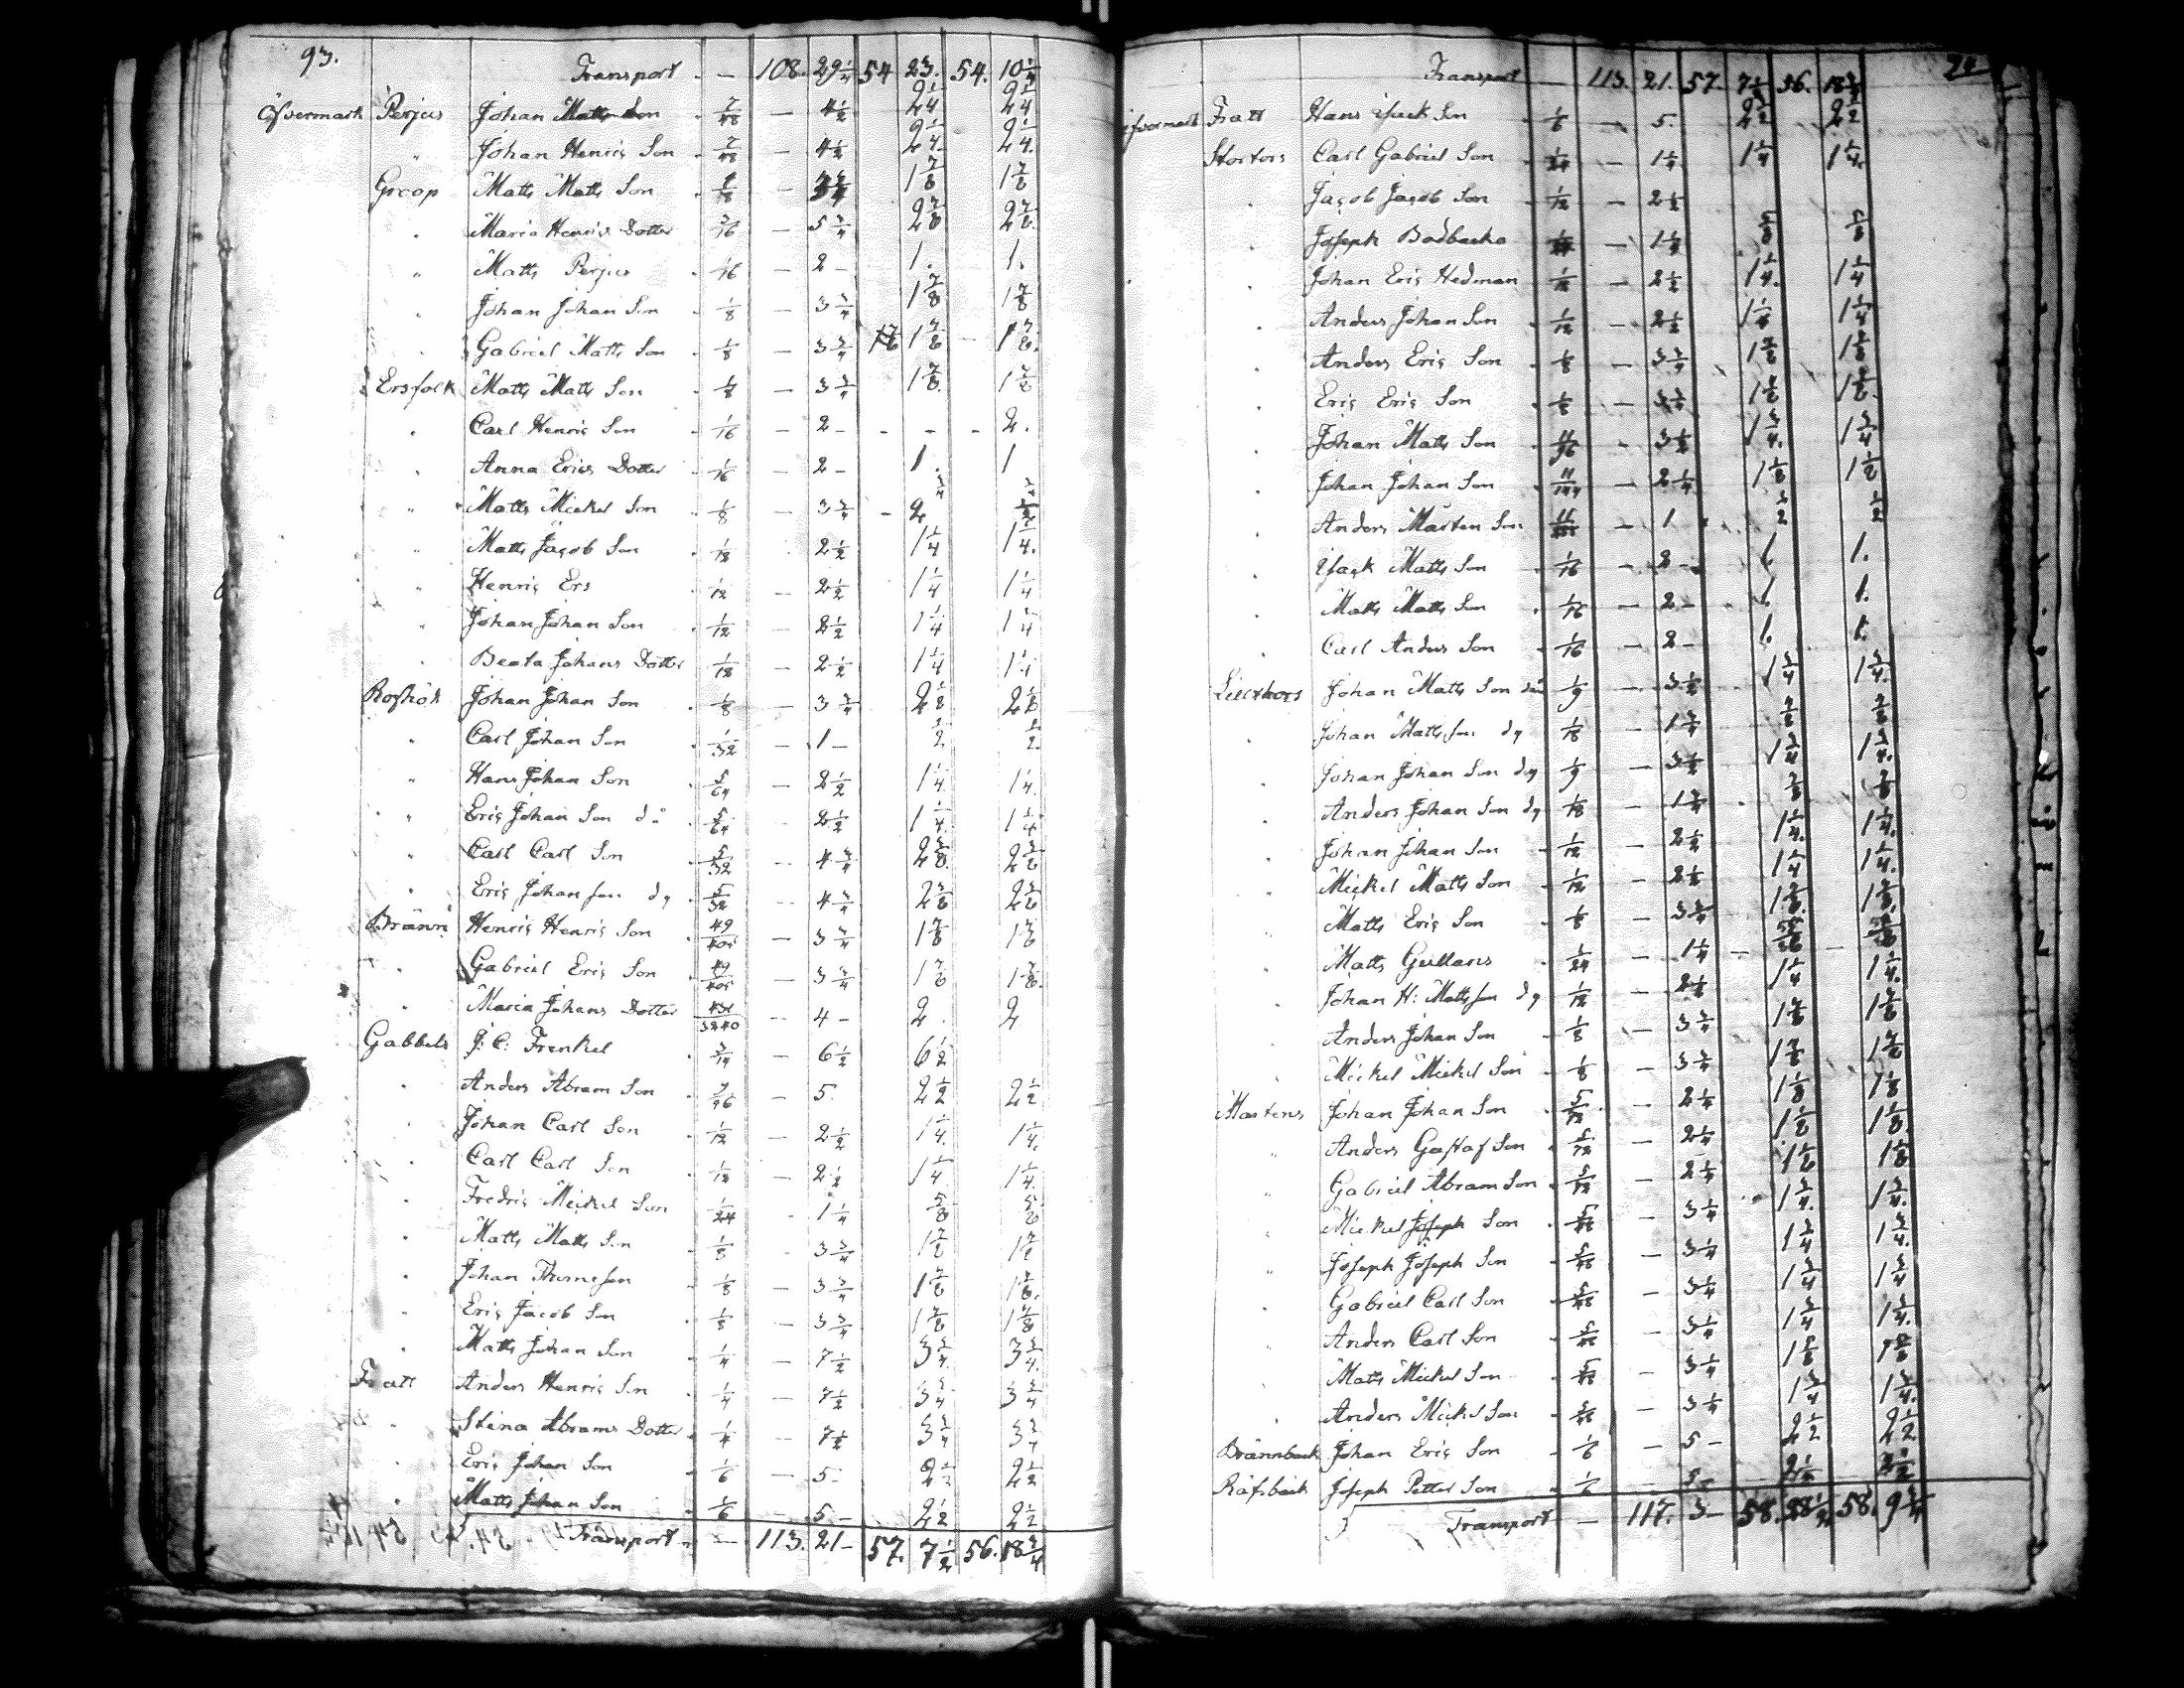 93.
Transport. — 108. 29 1/4 54 23. 54. 10 1/4
Öfvermark Perjus Johan Matts Son 7/48 — 4 1/2 2 1/4 2 1/4
" Johan Henric Son 7/48 — 4 1/2 2 1/4 2 1/4
Groop Matts Matts Son — 1 7/8 1 7/8
" Maria Henrics Dotter 3/16 — 5 3/4 2 7/8 2 7/8
" Matts Perjus 1/16 — 2 — 1. 1.
" Johan Johan Son 1/8 — 3 3/4 1 7/8 1 7/8
Gabriel Matts Son 1/8 — 3 3/4 1 7/8 — 1 7/8
Ersfolk Matts Matts Son 1/8 — 3 3/4 1 7/8 1 7/8
" Carl Henric Son 1/16 — 2 - - - - 2.
" Anna Erics Dotter 1/16 — 2 — 1. 1
" Matts Mickel Son 1/8 — 3 3/4 - 2
" Matts Jacob Son 1/12 2 1/2 1 1/4 1 1/4
" Henric Ers 1/12 — 2 1/2 1 1/4 1 1/4
" Johan Johan Son 1/12 — 2 1/2 1 1/4 1 1/4
" Beata Johans Dotter 1/12 — 2 1/2 1 1/4 1 1/4
Johan Johan Son 1/8 — 3 3/4
" Carl Johan Son 1/32 — 1 — 1/2 1/2
" Hans Johan Son 5/64 — 2 1/2 1 1/4 1 1/4
" Eric Johan Son 5/64 — 2 1/2 1 1/4 1 1/4
" Carl Carl Son 5/32 — 4 3/4 2 3/8 2 3/8
" Eric Johan Son dy 5/32 — 4 3/4 2 3/8 2 3/8
Bränn Henric Henric Son — 3 3/4 1 7/8 1 7/8
" Gabriel Eric Son — 3 3/4 1 7/8 1 7/8
" Maria Johans Dotter — 4 — 2. 2
Gabbels J: C: Frenkel — 6 1/2 6 1/2
" Anders Abram Son — 5. 2 1/2 2 1/2
" Johan Carl Son 1/12 — 2 1/2 1 1/4 1 1/4
" Carl Carl Son 1/12 — 2 1/2 1 1/4 1 1/4
" Fredric Mickel Son 1/24 - 1 1/4 5/8 5/8
" Matts Matts Son 1/8 - 3 3/4 1 7/8 1 7/8
" Johan Thomesson 1/8 — 3 3/4 1 7/8 1 7/8
" Eric Jacob Son 1/8 — 3 3/4 1 7/8 1 7/8
" Matts Johan Son 1/4 — 7 1/2 3 3/4 3 3/4
Fratt Anders Henric Son 1/4 — 7 1/2 3 3/4 3 3/4
" Stina Abrams Dotter 1/4 — 7 1/2 3 3/4 3 3/4
" Eric Johan Son 1/6 — 5 - 2 1/2 2 1/2
" Matts Johan Son 1/6 — 5 - 2 1/2 2 1/2
Transport — 113. 21 — 57. 7 1/2 56. 18 3/4
Transport — 113. 21. 57. 7 1/2 56. 18 3/4
Fratt Hans Isack Son 1/6 — 5. 2 1/2 2 1/2
Stortors Carl Gabriel Son — 1 1/4 1 1/4
Jacob Jacob Son 1/12 — 2 1/2
Joseph Bodbacka — 5/8 5/8
Johan Eric Hedman — 2 1/2 1 1/4 1 1/4
Anders Johan Son 1/12 — 2 1/2 1 1/4 1 1/4
Anders Eric Son 1/8 — 3 3/4 1 7/8 1 7/8
Eric Eric Son 1/8 — 3 3/4 1 7/8 1 7/8
Johan Matts Son — 3 1/2 1 3/4 1 3/4
Johan Johan Son 11/144 — 2 1/4 1 1/8 1 1/8
Anders Mårten Son — 1 1/2 1/2
Isack Matts Son 1/16 — 2 — 1. 1.
Matts Matts Son 1/16 — 2 — 1. 1.
Carl Anders Son 1/16 — 2 — 1. 1.
Johan Matts Son 1/9 — 3 1/2 1 3/4 1 3/4
Johan Matts son dy 1/18 — 1 3/4 7/8 7/8
Johan Johan Son dy 1/9 — 3 1/2 1 3/4 1 3/4
Anders Johan Son dy 1/18 — 1 3/4 7/8 7/8
Johan Johan Son 1/12 — 2 1/2 1 1/4 1 1/4
Mickel Matts Son 1/12 — 2 1/2 1 1/4 1 1/4
Matts Eric Son 1/8 — 3 3/4 1 7/8 1 7/8
Matts Gullans 1/24 — 1 1/4 — —
Johan H: Matts son dy 1/12 — 2 1/2 1 1/4 1 1/4
Anders Johan Son 1/8 — 3 3/4 1 7/8 1 7/8
Mickel Mickel Son 1/8 — 3 3/4 1 7/8 1 7/8
Mårtens Johan Johan Son 5/72 — 2 1/4 1 1/8 1 1/8
Anders Gustaf Son 5/72 — 2 1/4 1 1/8 1 1/8
Gabriel Abram Son 5/72 — 2 1/4 1 1/8 1 1/8
Mickel Joseph Son 5/48 — 3 1/4 1 3/4 1 3/4
Joseph Joseph Son 5/48 — 3 1/4 1 3/4 1 3/4
Gabriel Carl Son 5/48 — 3 1/4 1 3/4 1 3/4
Anders Carl Son 5/48 — 3 1/4 1 3/4 1 3/4
Matts Mickel Son 5/48 — 3 1/4 1 5/8 1 5/8
Anders Mickel Son 5/48 — 3 1/4 1 3/4 1 3/4
Brännback Johan Eric Son 1/6 — 5 — 2 1/2 2 1/2
Räfsbäck Joseph Petter Son 1/6 — 5 — 2 1/2 2 1/2
Transport — 117. 3 — 58. 28 1/2 58. 9 3/4